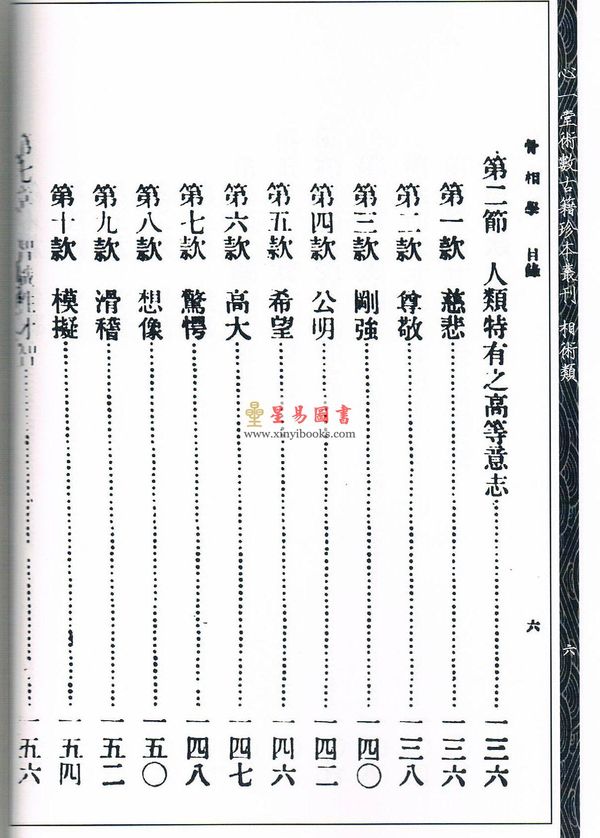 心一堂術數古籍珍本叢刊 相術類
六
骨相學 目錄
六
第二節 人類特有之高等意志 一三六
第一款 慈悲 一三六
第二款 尊敬 一三八
第三款 剛強 一四〇
第四款 公明 一四二
第五款 希望 一四六
第六款 高大 一四七
第七款 驚愕 一四八
第八款 想像 一五〇
第九款 滑稽 一五二
第十款 模擬 一五四
第七章 一五六
星易圖書
www.xinyibooks.com